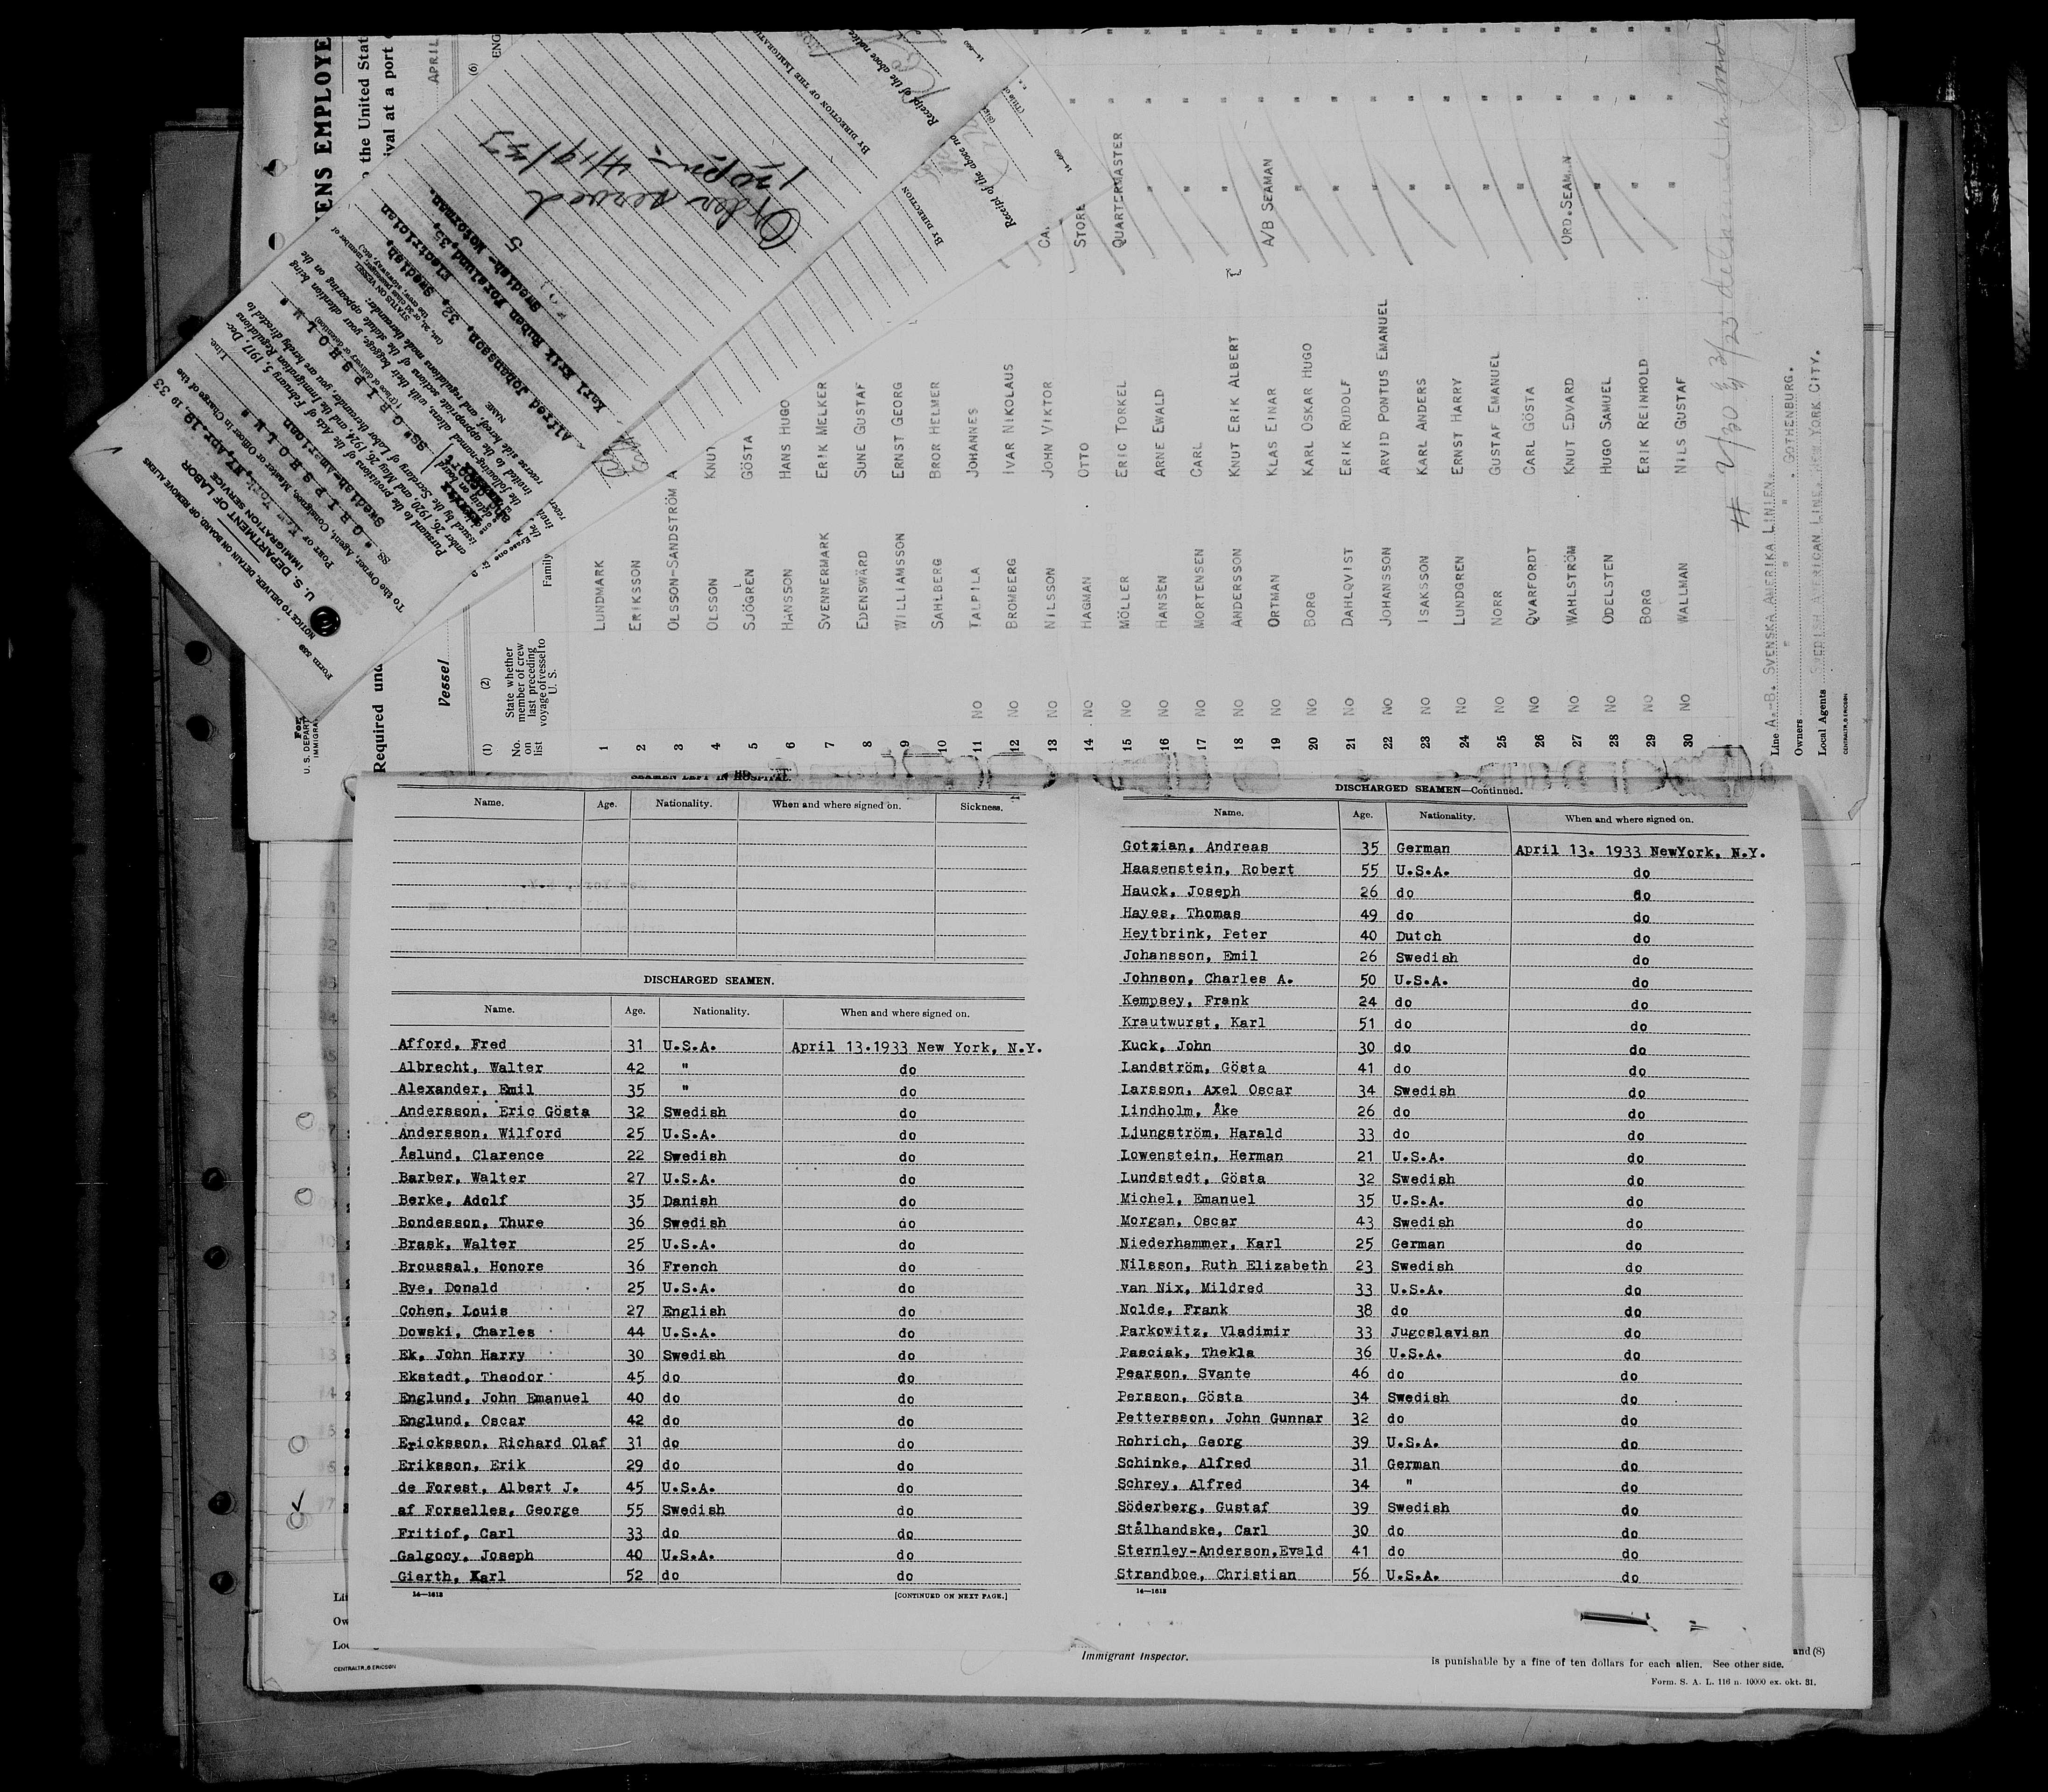 SEAMEN LEFT IN HOSPITAL.
Name. Age. Nationality. When and where signed on. Sickness.
DISCHARGED SEAMEN.
Name. Age. Nationality. When and where signed on.
Afford, Fred 31 U.S.A. April 13.1933 New York, N.Y.
Albrecht, Walter 42 " do
Alexander, Emil 35 " do
Andersson, Eric Gösta 32 Swedish do
Andersson, Wilford 25 U.S.A. do
Åslund, Clarence 22 Swedish do
Barber, Walter 27 U.S.A. do
Berke, Adolf 35 Danish do
Bondesson, Thure 36 Swedish do
Brask, Walter 25 U.S.A. do
Broussal, Honore 36 French do
Bye, Donald 25 U.S.A. do
Cohen, Louis 27 English do
Dowski, Charles 44 U.S.A. do
Ek, John Harry 30 Swedish do
Ekstedt, Theodor 45 do do
Englund, John Emanuel 40 do do
Englund, Oscar 42 do do
Ericksson, Richard Olaf 31 do do
Eriksson, Erik 29 do do
de Forest, Albert J. 45 U.S.A. do
af Forselles, George 55 Swedish do
Fritiof, Carl 33 do do
Galgocy, Joseph 40 U.S.A. do
Gierth, Karl 52 do do
14—1613 [CONTINUED ON NEXT PAGE.]
DISCHARGED SEAMEN—Continued.
Name. Age. Nationality. When and where signed on.
Gotzian, Andreas 35 German April 13. 1933 NewYork, N.Y.
Haasenstein, Robert 55 U.S.A. do
Hauck, Joseph 26 do do
Hayes, Thomas 49 do do
Heytbrink, Peter 40 Dutch do
Johansson, Emil 26 Swedish do
Johnson, Charles A. 50 U.S.A. do
Kempsey, Frank 24 do do
Krautwurst, Karl 51 do do
Kuck, John 30 do do
Landström, Gösta 41 do do
Larsson, Axel Oscar 34 Swedish do
Lindholm, Åke 26 do do
Ljungström, Harald 33 do do
Lowenstein, Herman 21 U.S.A. do
Lundstedt, Gösta 32 Swedish do
Michel, Emanuel 35 U.S.A. do
Morgan, Oscar 43 Swedish do
Niederhammer, Karl 25 German do
Nilsson, Ruth Elizabeth 23 Swedish do
van Nix, Mildred 33 U.S.A. do
Nolde, Frank 38 do do
Parkowitz, Vladimir 33 Jugoslavian do
Pasciak, Thekla 36 U.S.A. do
Pearson, Svante 46 do do
Persson, Gösta 34 Swedish do
Pettersson, John Gunnar 32 do do
Rohrich, Georg 39 U.S.A. do
Schinke, Alfred 31 German do
Schrey, Alfred 34 " do
Söderberg, Gustaf 39 Swedish do
Stålhandske, Carl 30 do do
Sternley-Anderson, Evald 41 do do
Strandboe, Christian 56 U.S.A. do
14—1613
Immigrant Inspector.
and (8)
is punishable by a fine of ten dollars for each alien. See other side.
Form. S. A. L. 116 n. 10000 ex. okt. 31.
CENTRALTR., G. ERICSON
ENS EMPLOYE
the United Stat
ival at a port
APRIL
Required und
Vessel
(1) No. on list
(2) State whether member of crew last preceding voyage of vessel to U. S.
Family
(6)
1 LUNDMARK
2 ERIKSSON
3 OLSSON-SANDSTRÖM A
4 OLSSON KNUT
5 SJÖGREN GÖSTA
6 HANSSON HANS HUGO
7 SVENNERMARK ERIK MELKER
8 EDENSWÄRD SUNE GUSTAF
9 WILLIAMSSON ERNST GEORG
10 SAHLBERG BROR HELMER
11 NO TALPILA JOHANNES
12 NO BROMBERG IVAR NIKOLAUS
13 NO NILSSON JOHN VIKTOR
14 NO HAGMAN OTTO STORE
15 NO MÖLLER ERIC TORKEL QUARTERMASTER
16 NO HANSEN ARNE EWALD "
17 NO MORTENSEN CARL "
18 NO ANDERSSON KNUT ERIK ALBERT "
19 NO ORTMAN KLAS EINAR A/B SEAMAN
20 NO BORG KARL OSKAR HUGO "
21 NO DAHLQVIST ERIK RUDOLF "
22 NO JOHANSSON ARVID PONTUS EMANUEL "
23 NO ISAKSSON KARL ANDERS "
24 NO LUNDGREN ERNST HARRY "
25 NO NORR GUSTAF EMANUEL "
26 NO QVARFORDT CARL GÖSTA "
27 NO WAHLSTRÖM KNUT EDVARD ORD.SEAMAN
28 NO ODELSTEN HUGO SAMUEL "
29 NO BORG ERIK REINHOLD "
30 NO WALLMAN NILS GUSTAF "
Line A.-B. SVENSKA AMERIKA LINIEN
Owners " " " . GOTHENBURG.
Local Agents SWEDISH AMERICAN LINE. NEW YORK CITY.
CENTRALTR., G. ERICSON
Form 339
NOTICE TO DELIVER, DETAIN ON BOARD, OR REMOVE ALIENS
U. S. DEPARTMENT OF LABOR
IMMIGRATION SERVICE
Port of New York, NY, Apr. 19, 1933
To the Owner, Agent, Consignee, Master or Officer in Charge of the
SS. "GRIPSHOLM" Swedish-American Line.
Pursuant to the provisions of the Acts of February 5, 1917, Dec-
ember 26, 1920, and May 26, 1924, and the Immigration Regulations
issued by the Secretary of Labor thereunder, you are hereby directed to
SS "GRIPSHOLM"
(Place of delivery or detention)
the following-named aliens, with their baggage, your attention being
invited to the appropriate sections made thereunder appearing on the
reverse side hereof, and regulations
NAME STATUS ON VESSEL
Alfred Johansson, 32, Swedish, Electrician
Karl Erik Ruben Forslund, 35, Swedish- Motorman.
5
Order served
120pm- 4/19/33
BY DIRECTION OF THE IMMIGRATION
Receipt of the above notice
14—660
BY DIRECTION
Receipt of the above no
14—660